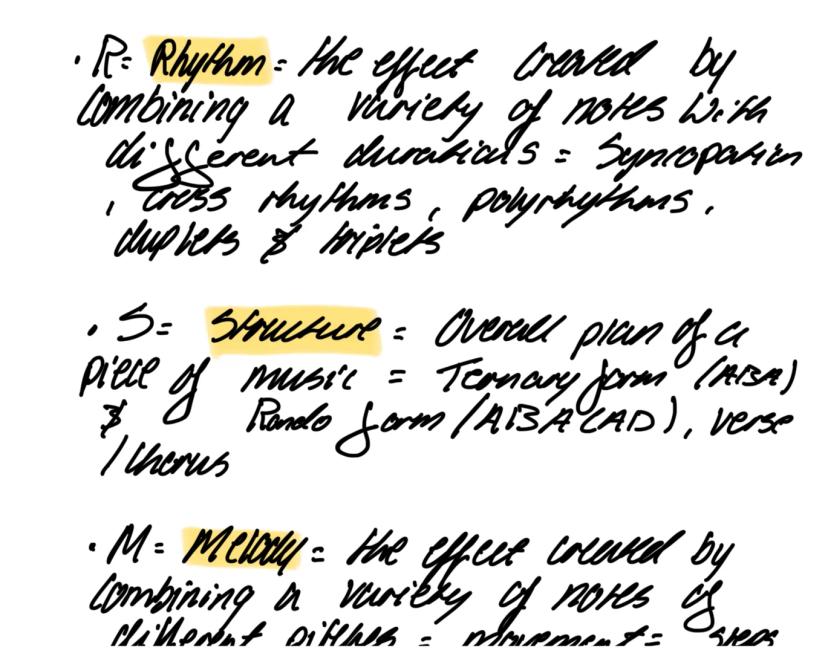 · R= Rhythm = the effect created by
combining a variety of notes with
different durations = Syncopation
, cross rhythms, polyrhythms,
duplets & triplets
· S= Structure = Overall plan of a
piece of music = Ternary form (ABA)
& Rondo form (ABACAD), verse
/ Chorus
· M= Melody = the effect created by
combining a variety of notes of
different pitches = movement = steps